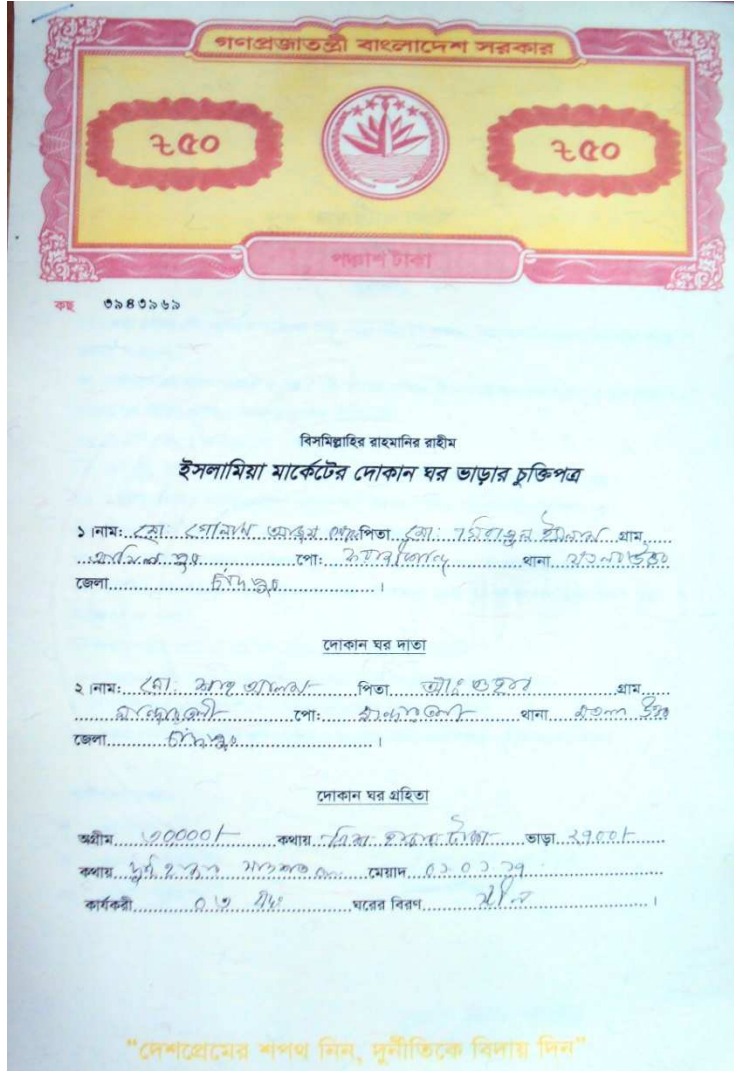 গণপ্রজাতন্ত্রী বাংলাদেশ সরকার
৳৫০ ৳৫০
পঞ্চাশ টাকা
কছ ৩৯৪৩৯৬৯
বিসমিল্লাহির রাহমানির রাহীম
ইসলামিয়া মার্কেটের দোকান ঘর ভাড়ার চুক্তিপত্র
১।নাম: মো: গোলাম পিতা মো: ইসলাম গ্রাম
পো: থানা
জেলা চাঁদপুর ।
দোকান ঘর দাতা
২।নাম: মো: শাহ আলম পিতা গ্রাম
পো: থানা মতলব উত্তর
জেলা চাঁদপুর ।
দোকান ঘর গ্রহিতা
অগ্রীম ৩০০০০/- কথায় ত্রিশ হাজার টাকা ভাড়া ২৭০০/-
কথায় দুই হাজার সাতশত মেয়াদ ০১.০১.২৭
কার্যকরী ০৩ ঘরের বিরণ ।
"দেশপ্রেমের শপথ নিন, দুর্নীতিকে বিদায় দিন"